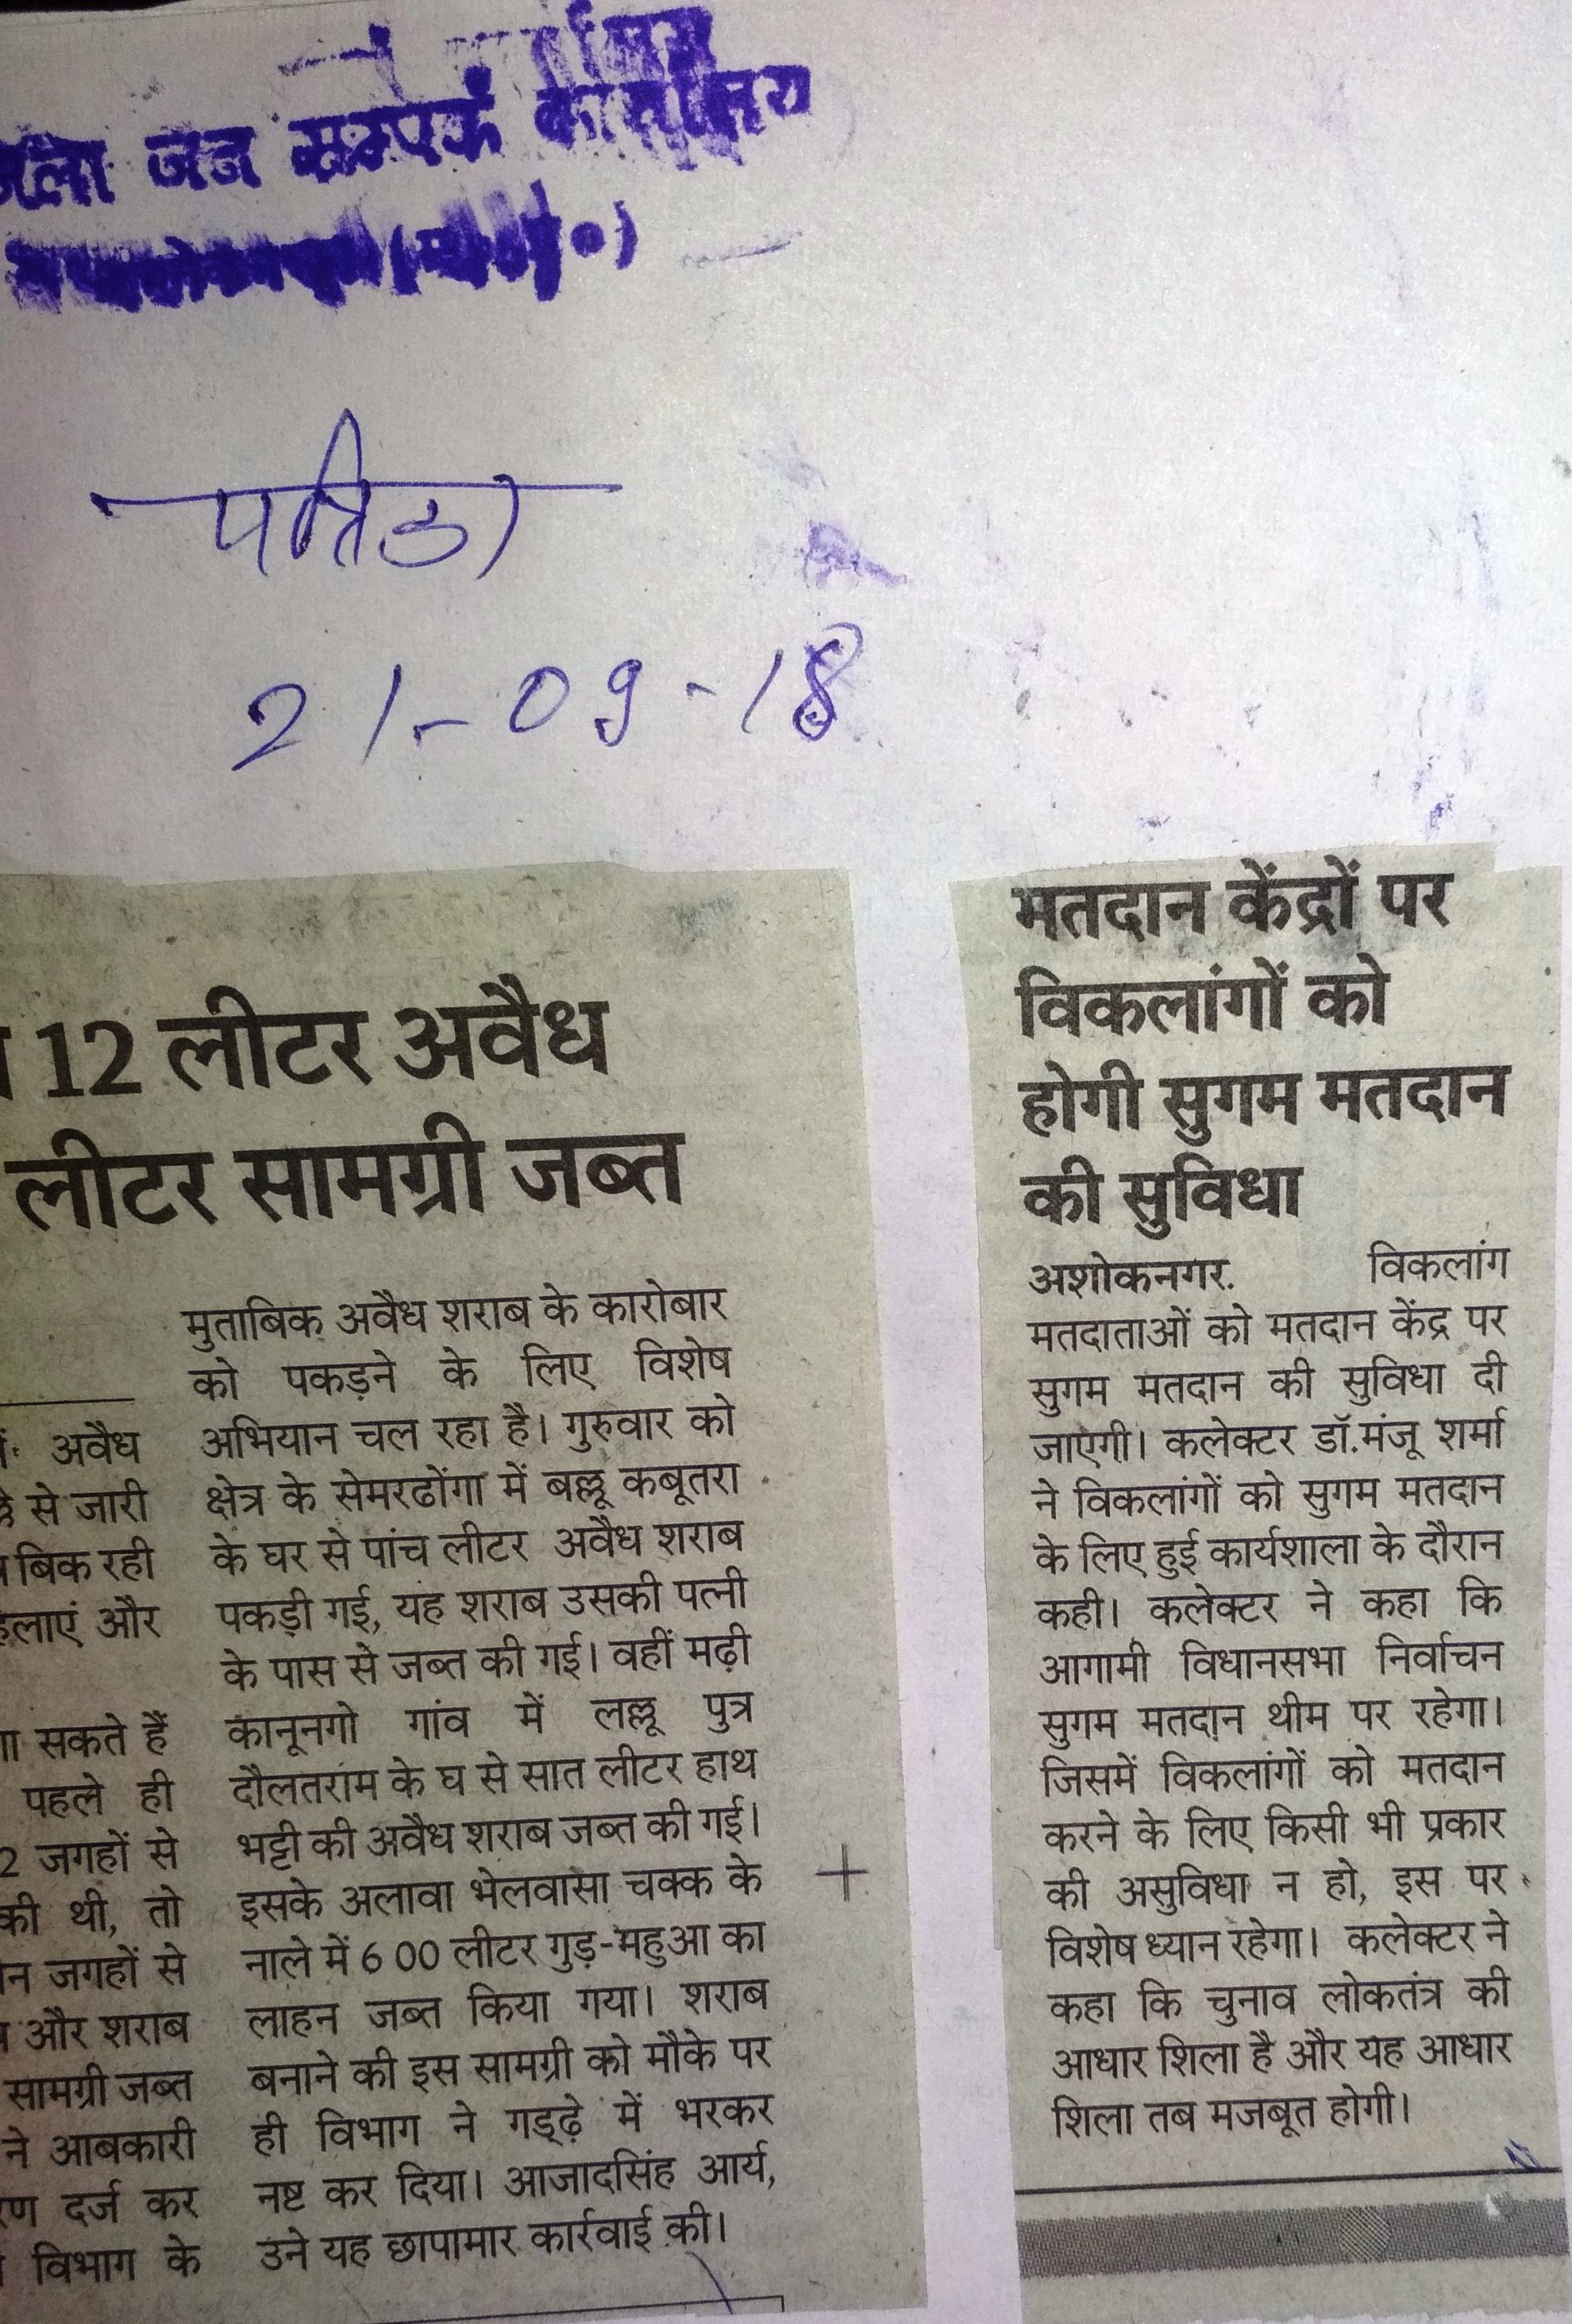 जन सम्पर्क कार्यालय
पत्रिका
21-09-18
12 लीटर अवैध
लीटर सामग्री जब्त
अवैध
से जारी
बिक रही
और
सकते हैं
पहले ही
जगहों से
की थी, तो
जगहों से
और शराब
सामग्री जब्त
ने आबकारी
दर्ज कर
विभाग के
मुताबिक अवैध शराब के कारोबार
को पकड़ने के लिए विशेष
अभियान चल रहा है। गुरुवार को
क्षेत्र के सेमरढोंगा में बल्लू कबूतरा
के घर से पांच लीटर अवैध शराब
पकड़ी गई, यह शराब उसकी पत्नी
के पास से जब्त की गई। वहीं मढ़ी
कानूनगो गांव में लल्लू पुत्र
दौलतराम के घ से सात लीटर हाथ
भट्टी की अवैध शराब जब्त की गई।
इसके अलावा भेलवासा चक्क के
नाले में 6 00 लीटर गुड़-महुआ का
लाहन जब्त किया गया। शराब
बनाने की इस सामग्री को मौके पर
ही विभाग ने गड्ढ़े में भरकर
नष्ट कर दिया। आजादसिंह आर्य,
उने यह छापामार कार्रवाई की।
मतदान केंद्रों पर
विकलांगों को
होगी सुगम मतदान
की सुविधा
अशोकनगर. विकलांग
मतदाताओं को मतदान केंद्र पर
सुगम मतदान की सुविधा दी
जाएगी। कलेक्टर डॉ.मंजू शर्मा
ने विकलांगों को सुगम मतदान
के लिए हुई कार्यशाला के दौरान
कही। कलेक्टर ने कहा कि
आगामी विधानसभा निर्वाचन
सुगम मतदान थीम पर रहेगा।
जिसमें विकलांगों को मतदान
करने के लिए किसी भी प्रकार
की असुविधा न हो, इस पर
विशेष ध्यान रहेगा। कलेक्टर ने
कहा कि चुनाव लोकतंत्र की
आधार शिला है और यह आधार
शिला तब मजबूत होगी।